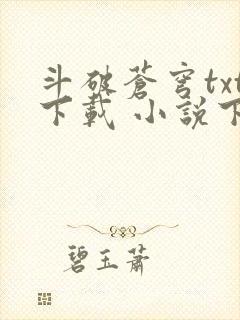 斗破蒼穹txt
下載 小說下
碧玉蕭